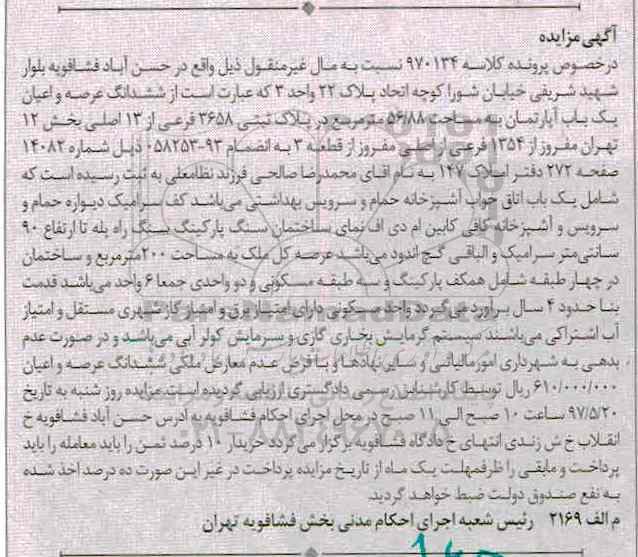 آگهی مزایده
درخصوص پرونده کلاسه ۹۷۰۱۳۴ نسبت به مال غیرمنقول ذیل واقع در حسن آباد فشافویه بلوار
شهید شریفی خیابان شورا کوچه اتحاد پلاک ۲۲ واحد ۳ که عبارت است از ششدانگ عرصه و اعیان
یک باب آپارتمان به مساحت ۵۶/۸۸ مترمربع در پلاک ثبتی ۳۶۵۸ فرعی از ۱۳ اصلی بخش ۱۲
تهران مفروز از ۱۳۵۴ فرعی از اصلی مفروز از قطعه ۳ به انضمام ۹۳-۰۵۸۲۵۳ ذیل شماره ۱۴۰۸۲
صفحه ۲۷۲ دفتر املاک ۱۴۷ به نام آقای محمدرضا صالحی فرزند نظامعلی به ثبت رسیده است که
شامل یک باب اتاق خواب آشپزخانه حمام و سرویس بهداشتی می‌باشد کف سرامیک دیواره حمام و
سرویس و آشپزخانه کافی کابین ام دی اف نمای ساختمان سنگ پارکینگ سنگ راه پله تا ارتفاع ۹۰
سانتی‌متر سرامیک و الباقی گچ اندود می‌باشد عرصه کل ملک به مساحت ۲۰۰ مترمربع و ساختمان
در چهار طبقه شامل همکف پارکینگ و سه طبقه مسکونی و دو واحدی جمعا ۶ واحد می‌باشد قدمت
بنا حدود ۴ سال برآورد می‌گردد واحد مسکونی دارای امتیاز برق و امتیاز گاز شهری مستقل و امتیاز
آب اشتراکی می‌باشند سیستم گرمایش بخاری گازی و سرمایش کولر آبی می‌باشد و در صورت عدم
بدهی به شهرداری امور مالیاتی و سایر نهادها و با فرض عدم معارض ملکی ششدانگ عرصه و اعیان
۶۱۰/۰۰۰/۰۰۰ ریال توسط کارشناس رسمی دادگستری ارزیابی گردیده است. مزایده روز شنبه به تاریخ
۹۷/۵/۲۰ ساعت ۱۰ صبح الی ۱۱ صبح در محل اجرای احکام فشافویه به آدرس حسن آباد فشافویه خ
انقلاب خ ش زندی انتهای خ دادگاه فشافویه برگزار می‌گردد خریدار ۱۰ درصد ثمن را باید معامله را باید
پرداخت و مابقی را ظرف مهلت یک ماه از تاریخ مزایده پرداخت در غیر این صورت ده درصد اخذ شده
به نفع صندوق دولت ضبط خواهد گردید.
م الف ۲۱۶۹ رئیس شعبه اجرای احکام مدنی بخش فشافویه تهران